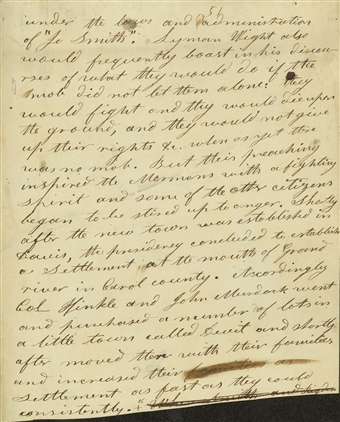 under the laws and administration
of "Jo Smith". Lyman Wight also
would frequently boast in his discou-
rses of what they would do if the
mob did not let them alone: they
would fight and they would die upon
the ground, and they would not give
up their rights &c. when as yet there
was no mob. But this preaching
inspired the Mormons with a fighting
spirit and some of the other citizens
began to be stired up to anger. Shortly
after the new town was established in
Davis, the presidency concluded to establish
a settlement at the mouth of Grand
river in Carol county. Accordingly
Col Hinkle and John Murdock went
and purchased a number of lots in
a little town called Dewit and shortly
after moved there with their families
and increased their
settlement as fast as they could
consistently. "+ and